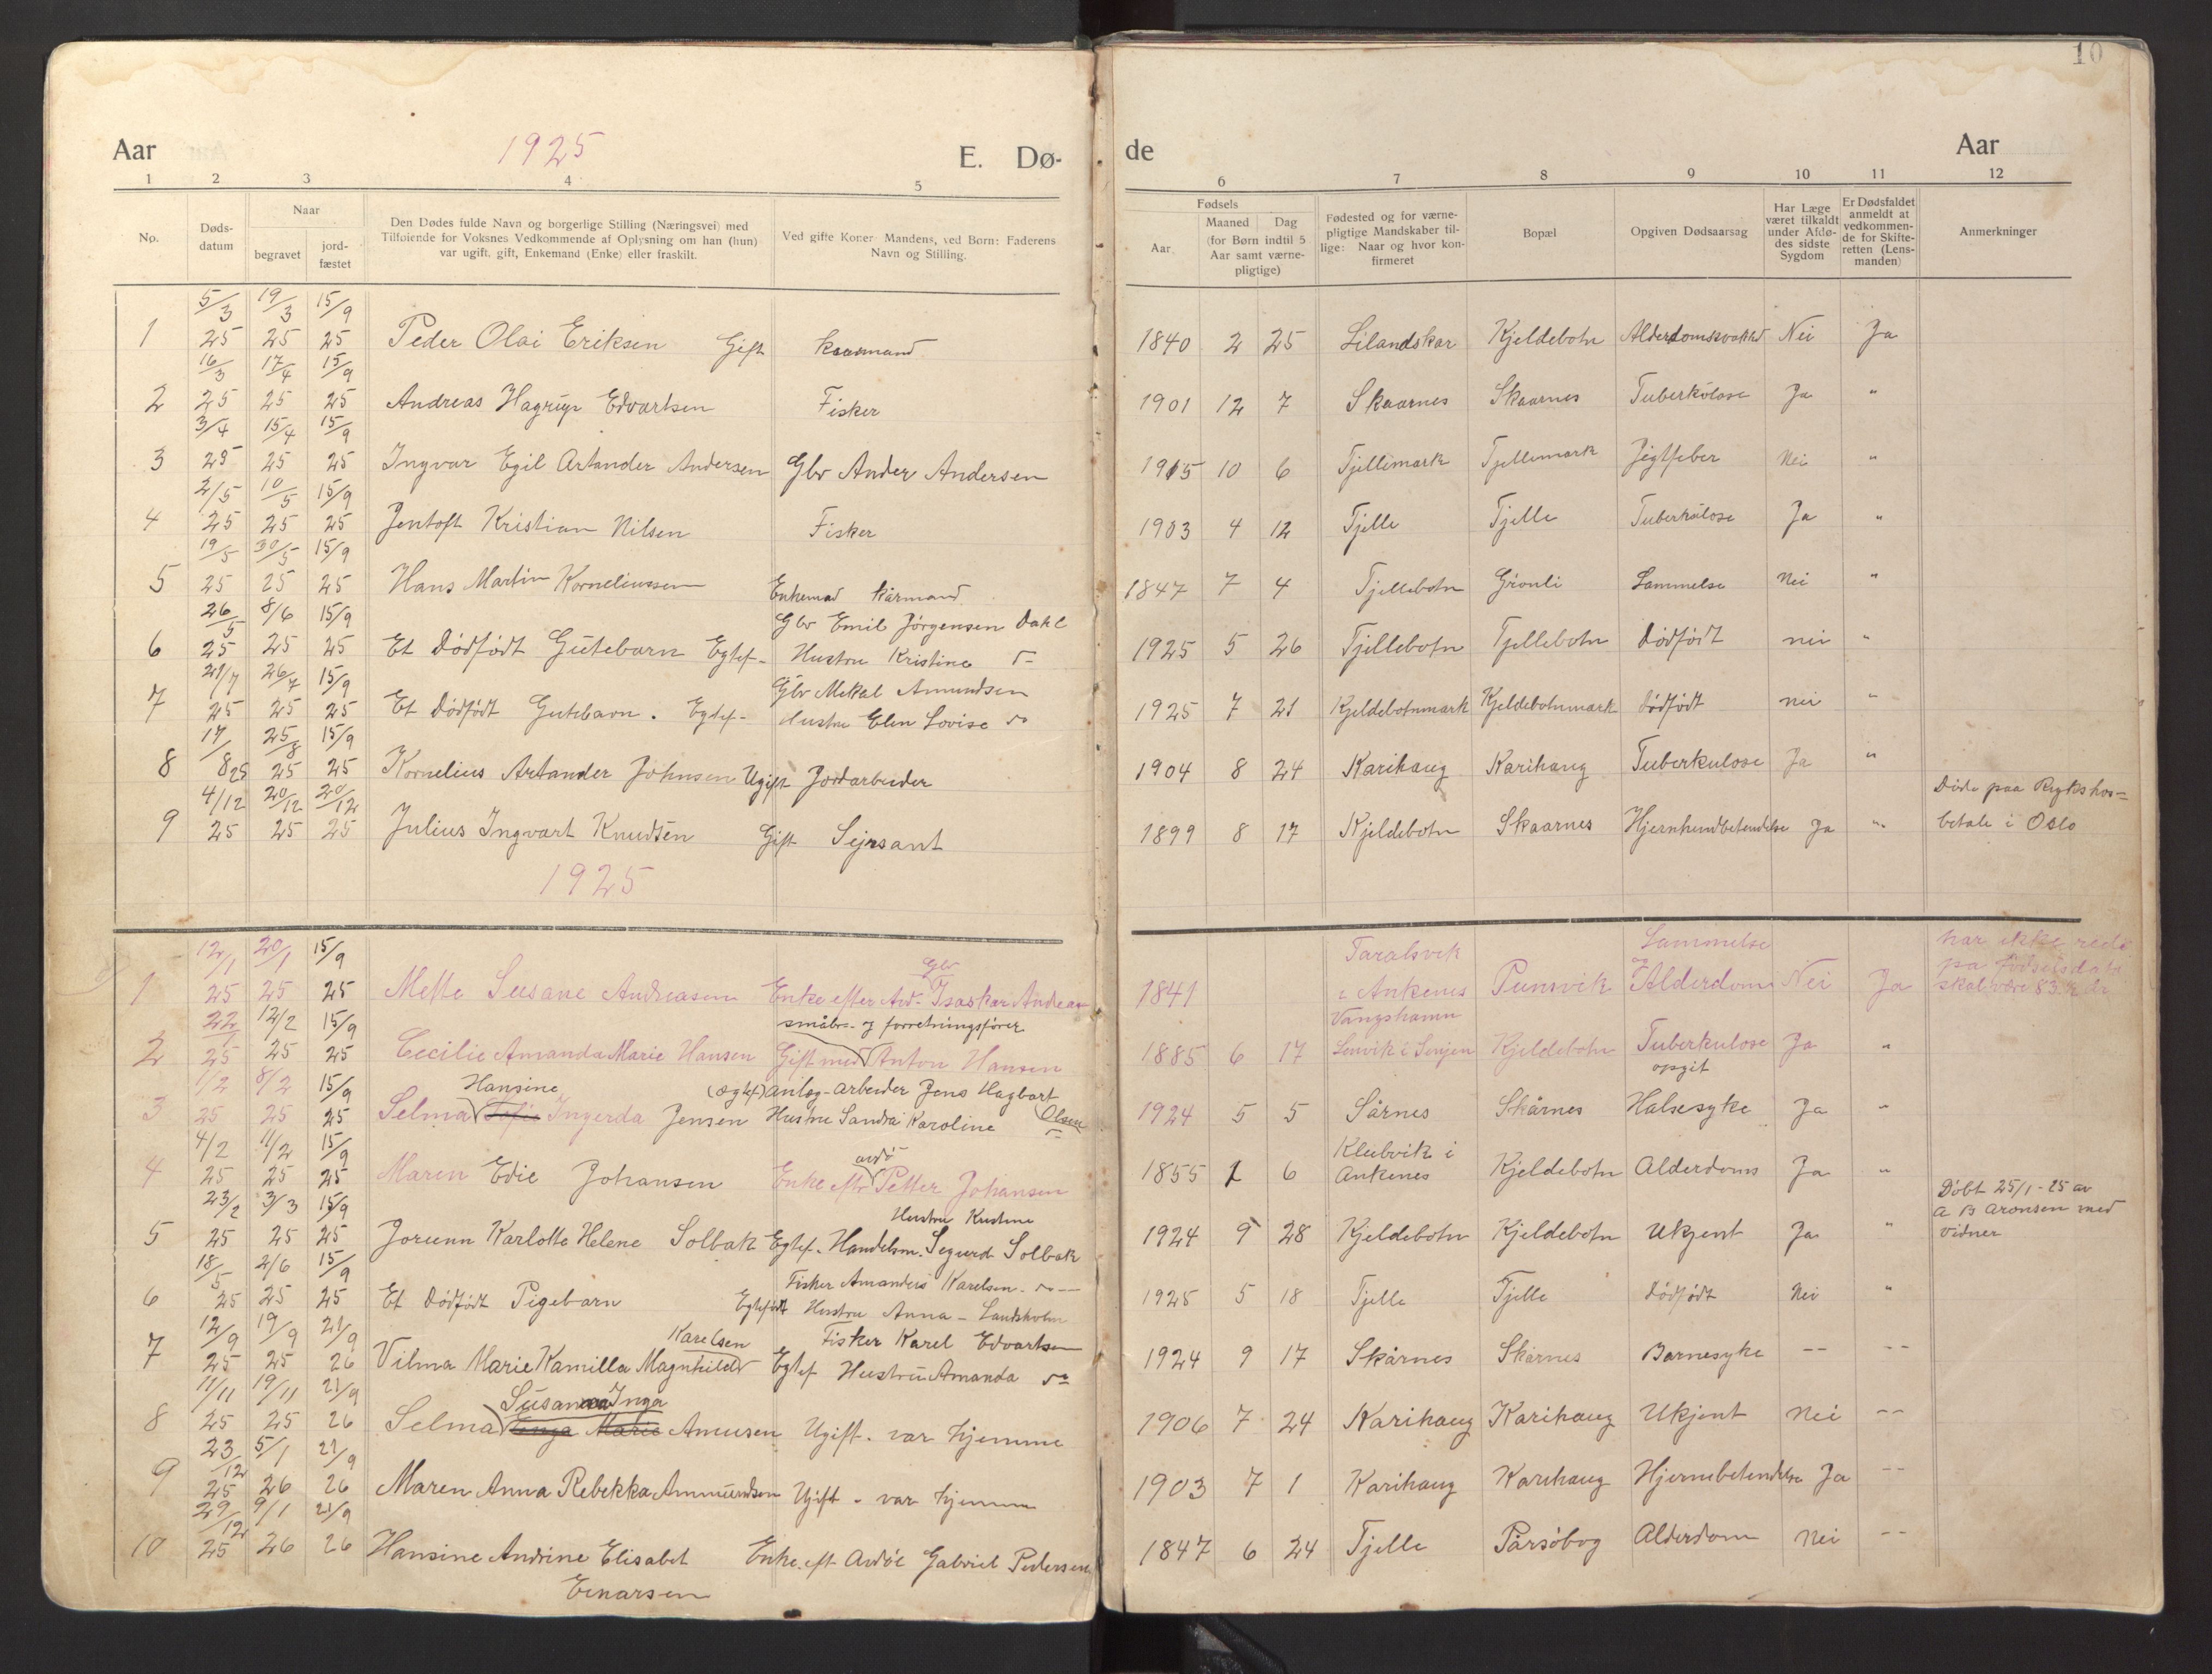 10
Aar 1925 E. Dø- de Aar
1 2 3 4 5 6 7 8 9 10 11 12
No.
Døds-
datum
Naar
begravet
jord-
fæstet
Den Dødes fulde Navn og borgerlige Stilling (Næringsvei) med
Tilføiende for Voksnes Vedkommende af Oplysning om han (hun)
var ugift, gift, Enkemand (Enke) eller fraskilt.
Ved gifte Koner: Mandens, ved Børn: Faderens
Navn og Stilling.
Fødsels
Aar
Maaned Dag
(for Børn indtil 5
Aar samt værne-
pligtige)
Fødested og for værne-
pligtige Mandskaber til-
lige: Naar og hvor kon-
firmeret
Bopæl
Opgiven Dødsaarsag
Har Læge
været tilkaldt
under Afdø-
des sidste
Sygdom
Er Dødsfaldet
anmeldt at
vedkommen-
de for Skifte-
retten (Lens-
manden)
Anmerkninger
5/3 19/3 15/9
1 25 25 25 Peder Olai Eriksen Gift kaarmand 1840 2 25 Lilandskar Kjeldebotn Nei Ja
16/3 17/4 15/9
2 25 25 25 Andreas Hagrup Edvartsen Fisker 1901 12 7 Skaarnes Skaarnes Tuberkulose Ja "
3/4 15/4 15/9
3 25 25 25 Ingvar Egil Artander Andersen Gbr Ander Andersen 1915 10 6 Tjellemark Tjellemark Jigtfeber Nei "
2/5 10/5 15/9
4 25 25 25 Jentoft Kristian Nilsen Fisker 1903 4 12 Tjelle Tjelle Tuberkulose Ja "
19/5 30/5 15/9
5 25 25 25 Hans Martin Korneliussen Enkemad kårmand 1847 7 4 Tjellebotn Grönli Lammelse Nei "
26/5 8/6 15/9 Gbr Emil Jörgensen Dahl
6 25 25 25 Et Dödfödt Gutebarn Egtef- Hustru Kristine 1925 5 26 Tjellebotn Tjellebotn Dödfödt nei "
21/7 26/7 15/9 Gbr Mekal Amundsen
7 25 25 25 Et Dödfödt Gutebarn. Egtef- Hustru Elen Lovise do 1925 7 21 Kjeldebotnmark Kjeldebotnmark dödfödt nei "
17/ 25/8 15/9
8 8 25 25 25 Kornelius Artander Johnsen Ugift Jordarbeider 1904 8 24 Karihaug Karihaug Tuberkulose Ja "
4/12 20/12 20/12 Döde paa Rykshos=
9 25 25 25 Julius Ingvart Knudsen Gift Sejrsant 1899 8 17 Kjeldebotn Skaarnes Hjernhundbetendelse Ja " betale i Oslo
1925
12/1 20/1 15/9 Gbr Taralsvik Lammelse har ikke rede
1 25 25 25 Mette Susane Andreasen Enke efter Avd- Isaskar Andreas 1841 i Ankenes Punsvik og Alderdom Nei Ja på födselsdato
skal være 83 ½ år
22/1 12/2 15/9 småbr- og forretningsfører Vangshamn
2 25 25 25 Cecilie Amanda Marie Hansen Gift med Anton Hansen 1885 6 17 Lenvik i Senjen Kjeldebotn Tuberkulose Ja "
opgit
1/2 8/2 15/9 Hansine (Ogtef) Anlæg-arbeider Jens Hagbart
3 25 25 25 Selma Sofie Ingerda Jensen Hustru Sandra Karoline Olsen 1924 5 5 Sårnes Skårnes Halsesyke Ja "
4/2 11/2 15/9 avdö Kleibvik i
4 25 25 25 Maren Edie Johansen Enke eftr Petter Johansen 1855 1 6 Ankenes Kjeldebotn Alderdoms Ja "
23/2 3/3 15/9 Hustru Kristine Döbt 25/1-25 av
5 25 25 25 Jorunn Karlotte Helene Solbak Egtef. Handelsm. Segurd Solbak 1924 9 28 Kjeldebotn Kjeldebotn Ukjent Ja " A B Aronsen med
vidner
18/5 2/6 15/9 Fisker Amanders Karelsen
6 25 25 25 Et dödfödt Pigebarn Egtefödt Hustru Anna - Landsholm 1925 5 18 Tjelle Tjelle dödfödt Nei "
12/9 19/9 21/9 Karelsen Fisker Karel Edvartsen
7 25 25 26 Vilma Marie Kamilla Magnhild Egtef Hustru Amanda do 1924 9 17 Skårnes Skårnes Barnesyke -- --
11/11 19/11 21/9 Susanna Inga
8 25 25 26 Selma Inga Marie Amusen Ugift. var hjemme 1906 7 24 Karihaug Karihaug Ukjent Nei --
23/12 5/1 21/9
9 25 26 26 Maren Anna Rebekka Ammundsen Ugift - var hjemme 1903 7 1 Karihaug Karihaug Hjernebetendelse Ja --
29/12 9/1 21/9
10 25 26 26 Hansine Andrine Elisabet Enke. eft Avdöe Gabriel Pedersen 1847 6 24 Tjelle Pårsöbog Alderdom Nei --
Einarsen